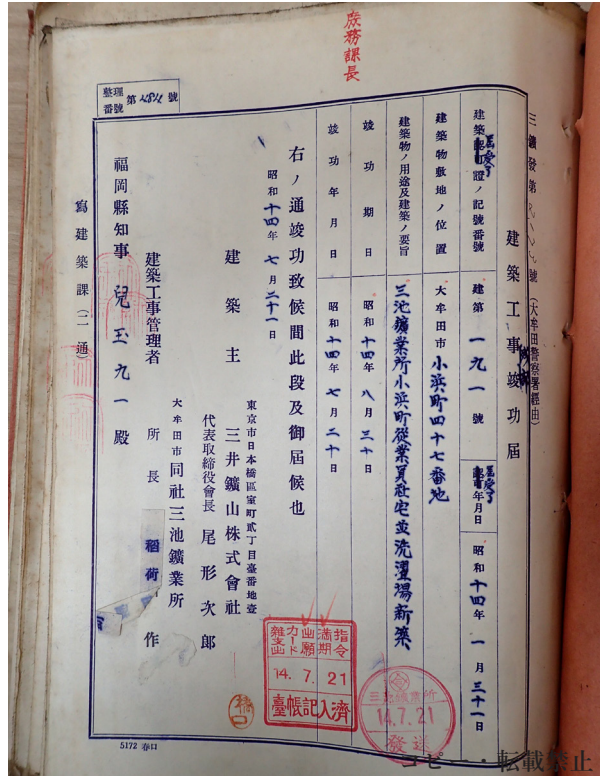 庶務課長
整理番號 第 號
三鑛發第 號(大牟田警察署經由)
建築工事竣功屆
建築認可證ノ記號番號 建第一九一號 屆受了年月日 昭和十四年一月三十一日
屆受了
建築物敷地ノ位置 大牟田市小浜町四十七番地
建築物ノ用途及建築ノ要旨 三池鑛業所小浜町從業員社宅並洗濯場新築
竣功期日 昭和十四年八月三十日
竣功年月日 昭和十四年七月二十日
右ノ通竣功致候間此段及御屆候也
昭和十四年七月二十一日
東京市日本橋區室町貳丁目壹番地壹
建築主 三井鑛山株式會社
代表取締役會長 尾形次郎
大牟田市 同社三池鑛業所
建築工事管理者 所長 稻荷 作
福岡縣知事 兒玉九一殿
寫建築課(二通)
指令
滿期
出願
カード
雜支出
14. 7. 21
臺帳記入濟
三池鑛業所
14.7.21
發送
橋口
5172 春口
コピー・転載禁止